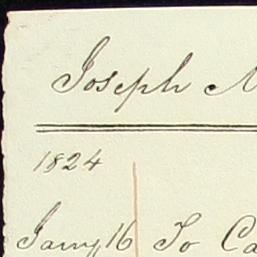 Joseph
1824
Jany 16 To